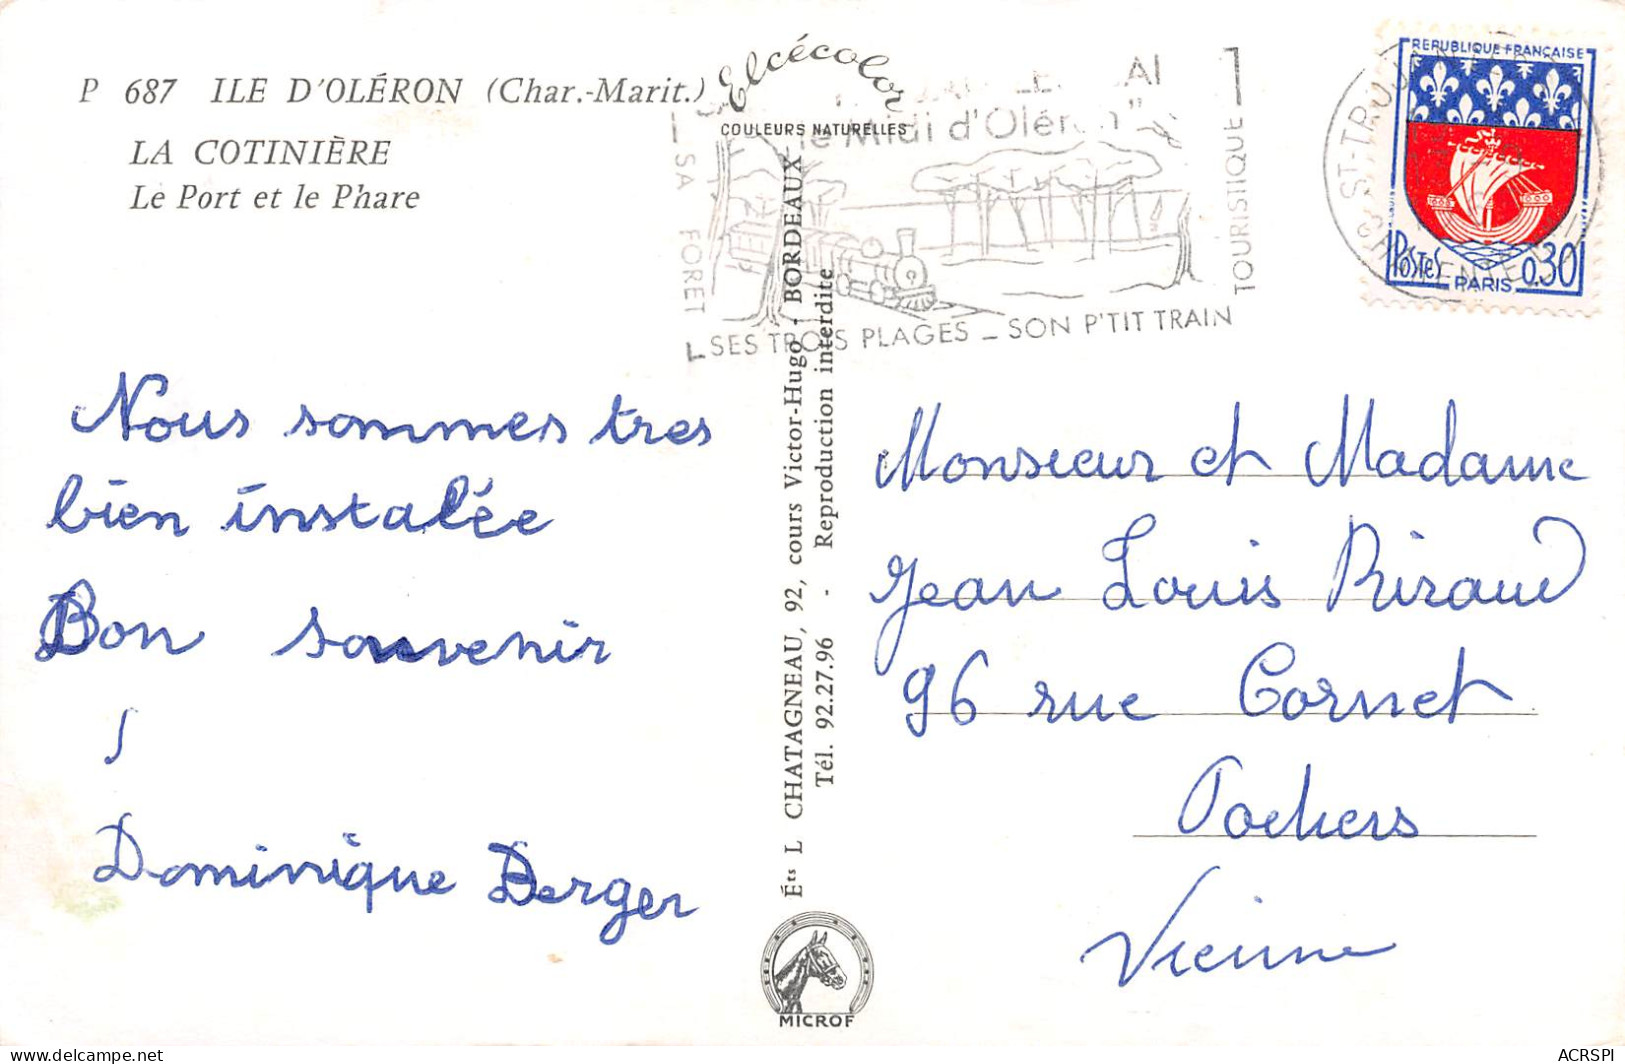 P 687 ILE D'OLÉRON (Char.-Marit.)
LA COTINIÈRE
Le Port et le Phare
Elcécolor
COULEURS NATURELLES
le Midi d'Oléron"
SA FORET
SES TROIS PLAGES - SON P'TIT TRAIN
TOURISTIQUE
ST-TROJAN
REPUBLIQUE FRANÇAISE
POSTES 0,30
PARIS
Nous sommes tres
bien instalée
Bon souvenir
Dominique Berger
Éts L CHATAGNEAU, 92, cours Victor-Hugo - BORDEAUX
Tél. 92.27.96 - Reproduction interdite
MICROF
Monsieur et Madame
Jean Louis Riraud
96 rue Cornet
Poitiers
Vienne
ACRSPI